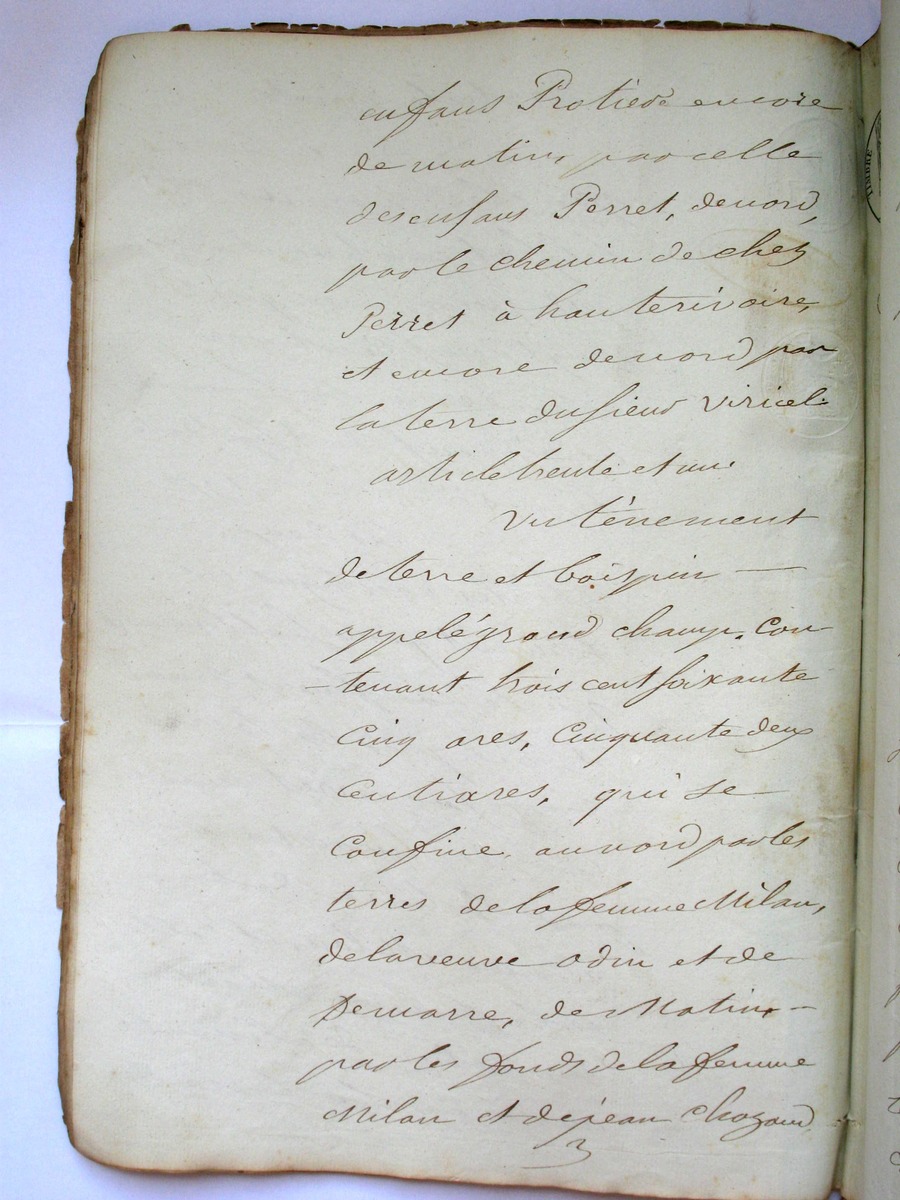 enfans Protière encore
de matin, par celle
des enfans Perret, de nord,
par le chemin de chez
Perret à hauterivoire,
et encore de nord par
la terre du sieur Viricel.
article trente et un.
Un ténement
de terre et bois pin —
appelé grand champ. Con-
-tenant trois cent soixante
Cinq ares, Cinquante deux
Centiares, qui se
Confine, au nord par les
terres de la femme Milan,
de la veuve Odin et de
Demarre, de Matin, —
par les fonds de la femme
Milan et de jean Chazaud
TIMBRE